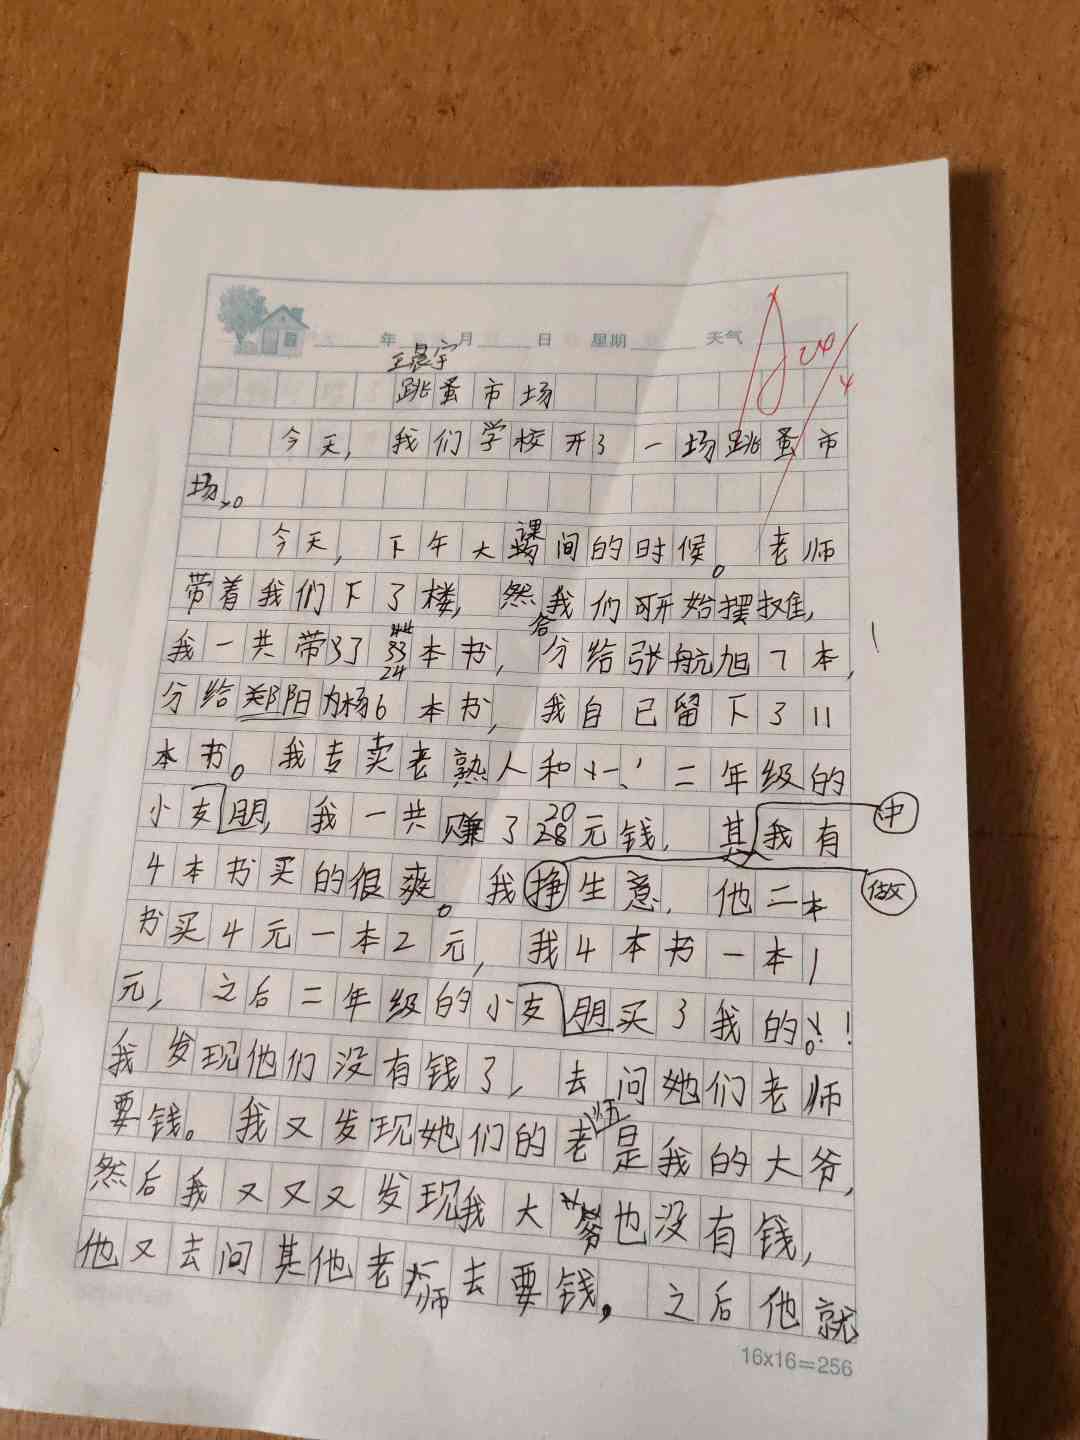 年 月 日 星期 天气
王晨宇
跳蚤市场
今天，我们学校开了一场跳蚤市
场。
今天，下午大课间的时候。老师
带着我们下了楼，然后我们开始摆摊，
我一共带了24本书，分给张航旭7本，
分给郑阳杨6本书，我自己留下了11
本书。我专卖老熟人和一、二年级的
小朋友，我一共赚了28元钱，其中我有
4本书买的很爽。我做生意，他二本
书买4元一本2元，我4本书一本1
元，之后二年级的小朋友买了我的！
我发现他们没有钱了，去问她们老师
要钱。我又发现她们的老师是我的大爷，
然后我又又又发现我大爷也没有钱，
他又去问其他老师去要钱，之后他就
16x16=256